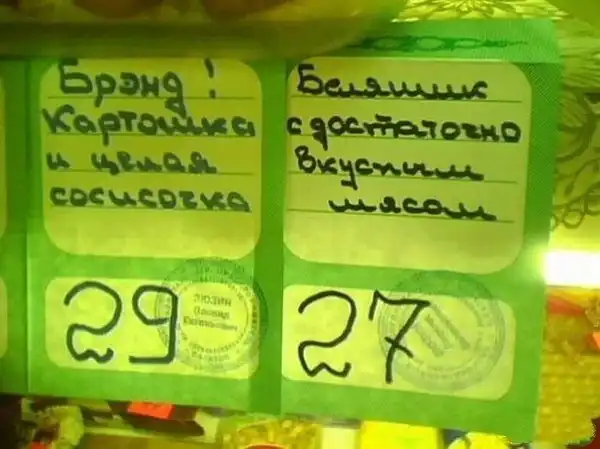 Брэнд!
Картошка
и целая
сосисочка
29
Беляшик
с достаточно
вкусным
мясом
27